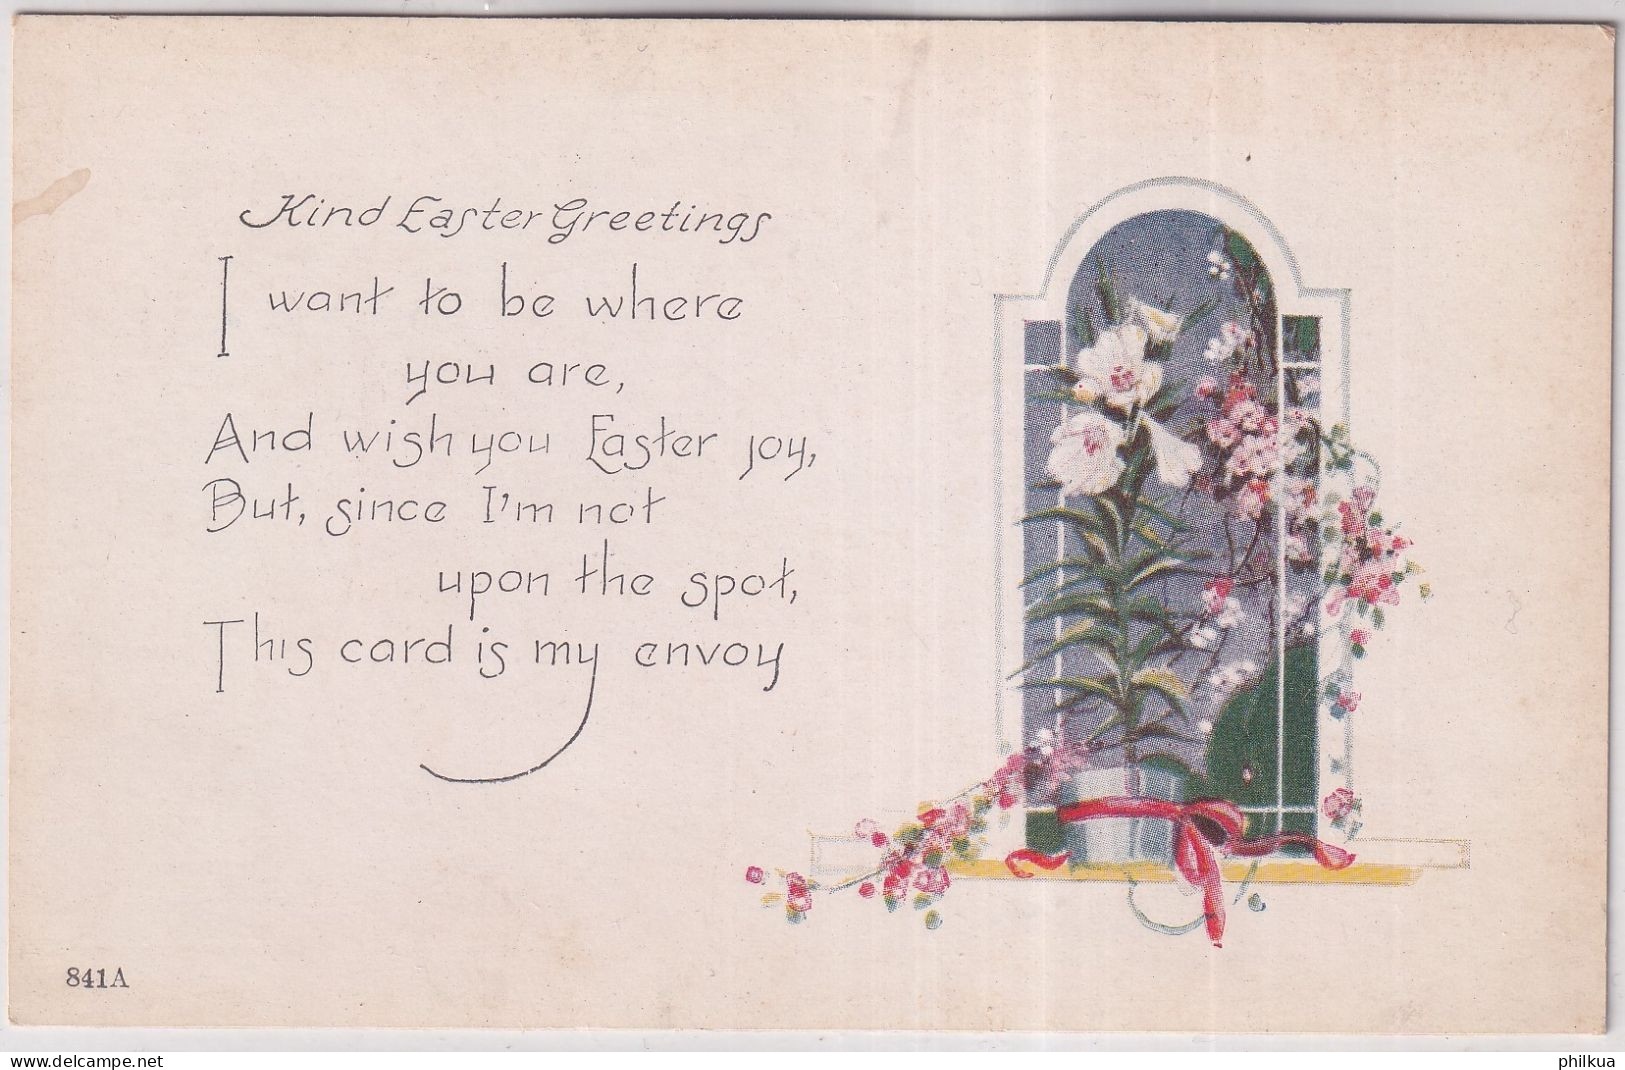 Kind Easter Greetings
I want to be where
you are,
And wish you Easter joy,
But, since I'm not
upon the spot,
This card is my envoy
841A
www.delcampe.net
philkua